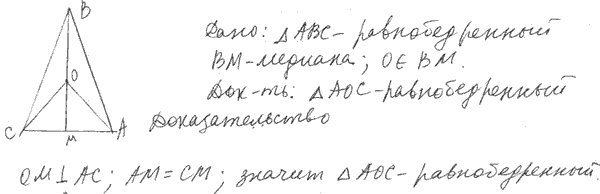 B
O
C
M
A
Дано: △ABC - равнобедренный
BM - медиана; O ∈ BM.
Док-ть: △AOC - равнобедренный
Доказательство
OM ⊥ AC; AM = CM; значит △AOC - равнобедренный.